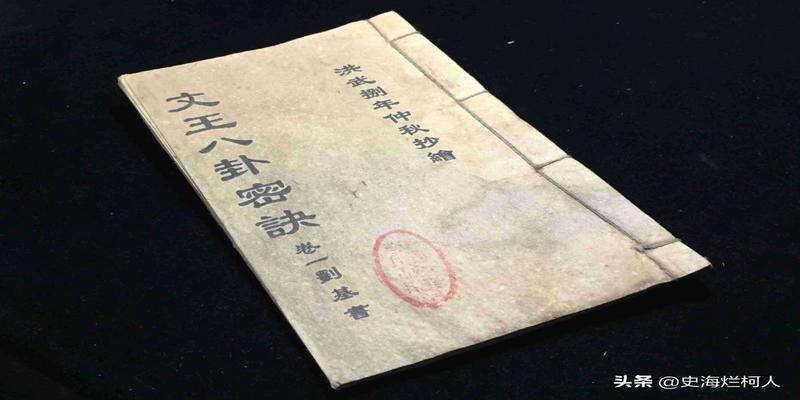 洪武捌年仲秋抄繪
文王八卦密訣
卷一劉基書
头条 @史海烂柯人